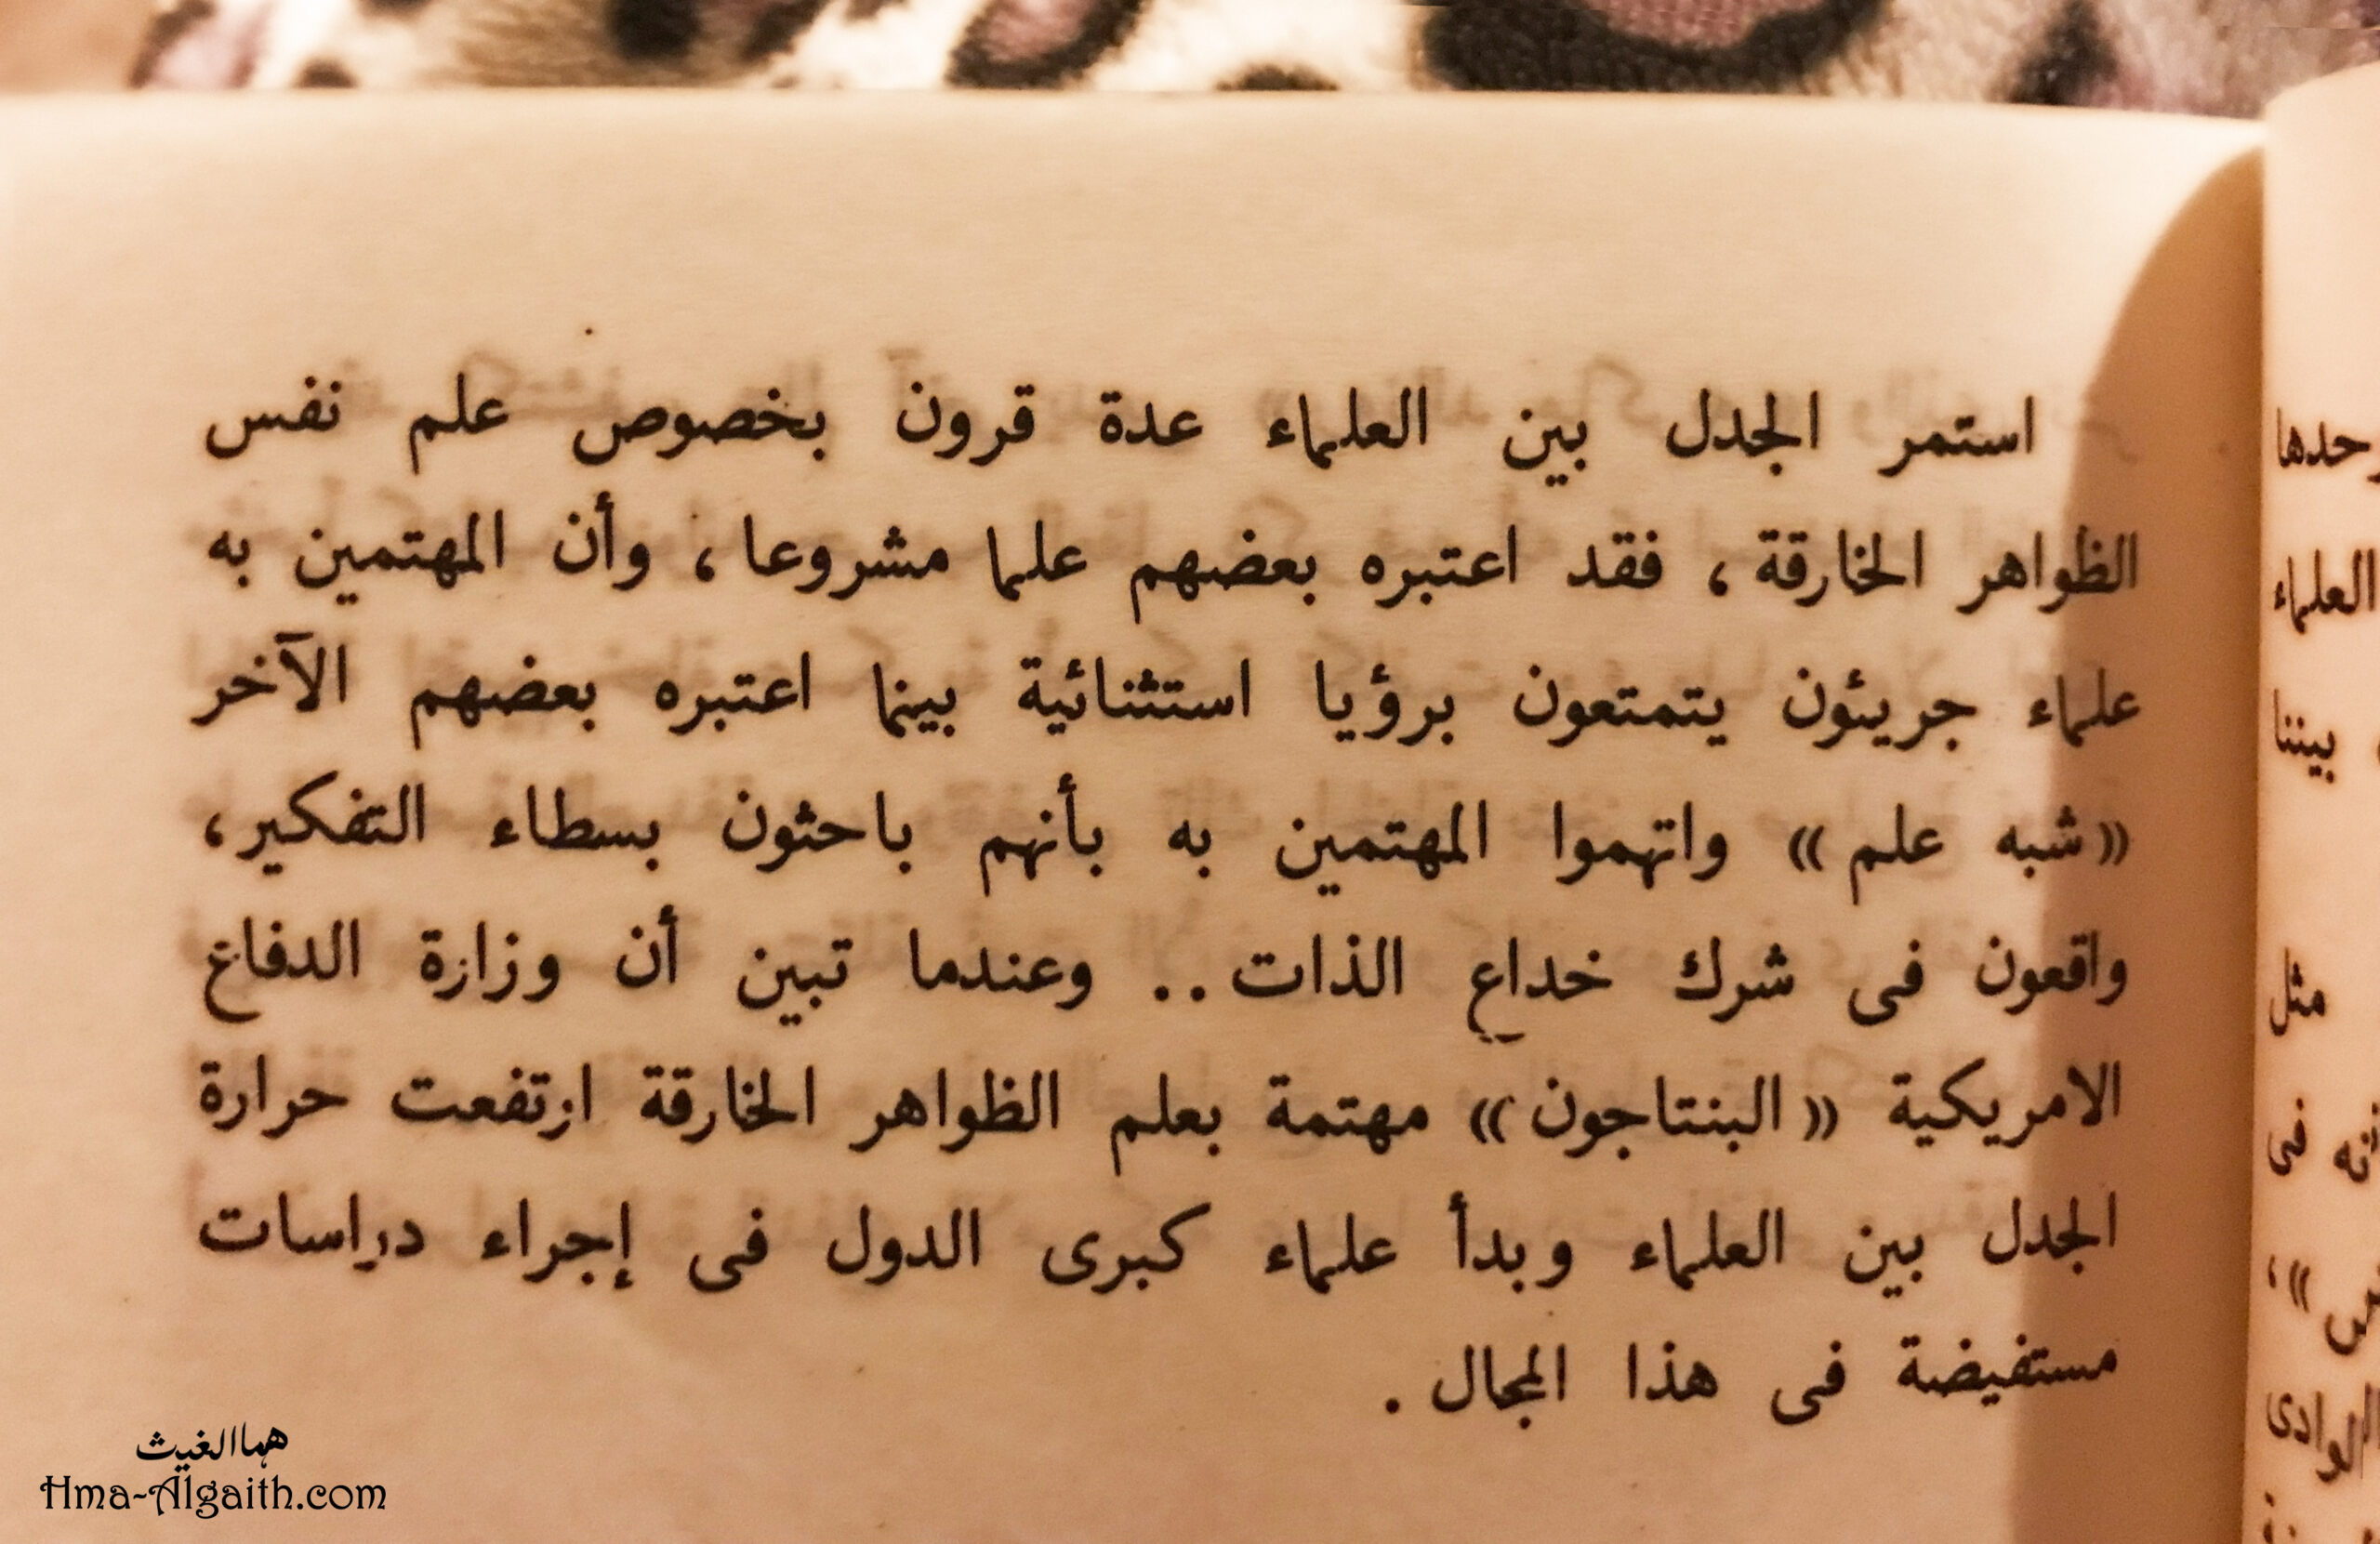 استمر الجدل بين العلماء عدة قرون بخصوص علم نفس
الظواهر الخارقة ، فقد اعتبره بعضهم علما مشروعا ، وأن المهتمين به
علماء جريئون يتمتعون برؤيا استثنائية بينما اعتبره بعضهم الآخر
«شبه علم» واتهموا المهتمين به بأنهم باحثون بسطاء التفكير،
واقعون فى شرك خداع الذات .. وعندما تبين أن وزارة الدفاع
الامريكية «البنتاجون» مهتمة بعلم الظواهر الخارقة ارتفعت حرارة
الجدل بين العلماء وبدأ علماء كبرى الدول فى إجراء دراسات
مستفيضة فى هذا المجال .
هما الغيث
Hma-Algaith.com
حدها
العلماء
بيننا
مثل
فى
الوادى